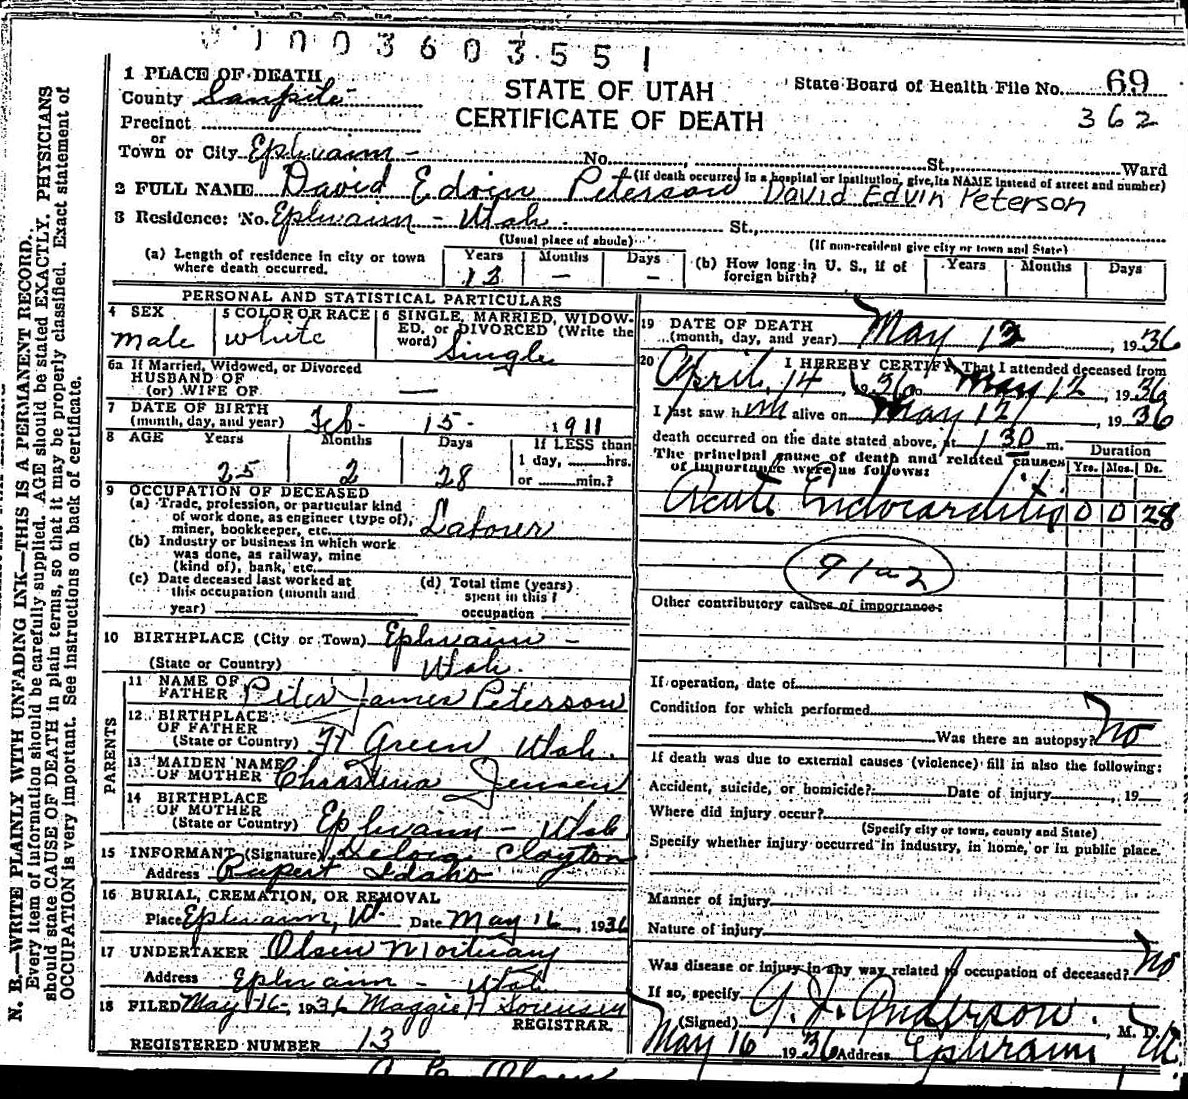 1003603551
1 PLACE OF DEATH
County Sanpete
STATE OF UTAH
CERTIFICATE OF DEATH
State Board of Health File No. 69
362
Precinct
or
Town or City Ephraim - No. , St. Ward
(If death occurred in a hospital or institution, give its NAME instead of street and number)
2 FULL NAME David Edvin Peterson David Edvin Peterson
3 Residence: No. Ephraim - Utah. St.,
(Usual place of abode) (If non-resident give city or town and State)
(a) Length of residence in city or town where death occurred. Years 13 Months — Days —
(b) How long in U. S., if of foreign birth? Years Months Days
PERSONAL AND STATISTICAL PARTICULARS
4 SEX male
5 COLOR OR RACE white
6 SINGLE, MARRIED, WIDOWED, or DIVORCED (Write the word) Single
6a If Married, Widowed, or Divorced
HUSBAND OF
(or) WIFE OF —
7 DATE OF BIRTH
(month, day, and year) Feb. 15- 1911
8 AGE Years 25 Months 2 Days 28 If LESS than 1 day, hrs. or min.?
9 OCCUPATION OF DECEASED
(a) Trade, profession, or particular kind
of work done, as engineer (type of),
miner, bookkeeper, etc. Laborer
(b) Industry or business in which work
was done, as railway, mine
(kind of), bank, etc.
(c) Date deceased last worked at
this occupation (month and
year)
(d) Total time (years)
spent in this
occupation
10 BIRTHPLACE (City or Town) Ephraim -
(State or Country) Utah.
PARENTS
11 NAME OF
FATHER Peter James Peterson
12 BIRTHPLACE
OF FATHER
(State or Country) Ft Green Utah.
13 MAIDEN NAME
OF MOTHER Christina Jensen
14 BIRTHPLACE
OF MOTHER
(State or Country) Ephraim - Utah
15 INFORMANT (Signature) Clayton
Address Rupert Idaho
16 BURIAL, CREMATION, OR REMOVAL
Place Ephraim, Ut. Date May 16, 1936
17 UNDERTAKER Olsen Mortuary
Address Ephraim - Utah
18 FILED May 16-, 1936 Maggie H Sorensen
REGISTRAR.
REGISTERED NUMBER 13
Olsen
19 DATE OF DEATH
(month, day, and year) May 12, 1936
20 I HEREBY CERTIFY, That I attended deceased from
April 14, 36 to May 12, 1936
I last saw him alive on May 12, 1936
death occurred on the date stated above, at 1 30 m.
The principal cause of death and related causes
of importance were as follows:
Duration
Yrs. Mos. Ds.
Acute Endocarditis 0 0 28
91a2
Other contributory causes of importance:
If operation, date of
Condition for which performed
Was there an autopsy? No
If death was due to external causes (violence) fill in also the following:
Accident, suicide, or homicide? Date of injury , 19
Where did injury occur?
(Specify city or town, county and State)
Specify whether injury occurred in industry, in home, or in public place.
Manner of injury
Nature of injury
Was disease or injury in any way related to occupation of deceased? No
If so, specify
(Signed) Anderson. M. D.
May 16 1936 Address Ephraim Ut.
N. B.—WRITE PLAINLY WITH UNFADING INK—THIS IS A PERMANENT RECORD.
Every item of information should be carefully supplied. AGE should be stated EXACTLY. PHYSICIANS
should state CAUSE OF DEATH in plain terms, so that it may be properly classified. Exact statement of
OCCUPATION is very important. See instructions on back of certificate.